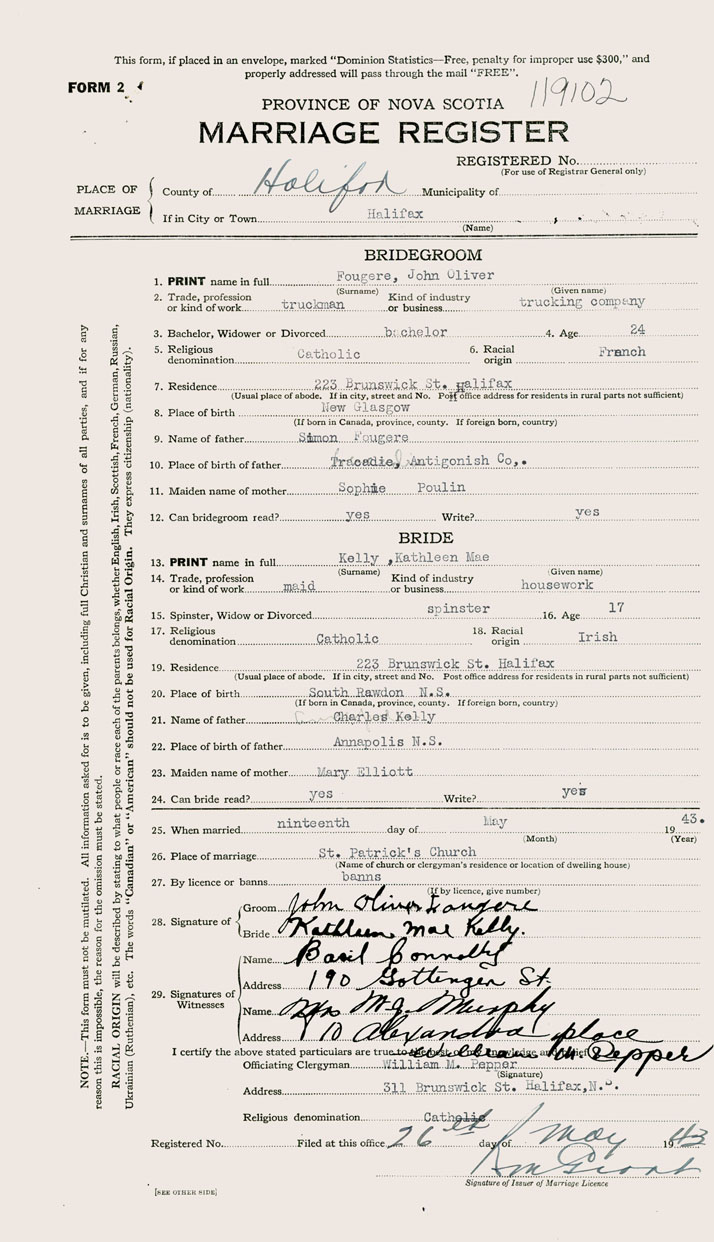 This form, if placed in an envelope, marked "Dominion Statistics—Free, penalty for improper use $300," and
properly addressed will pass through the mail "FREE".
FORM 2
119102
PROVINCE OF NOVA SCOTIA
MARRIAGE REGISTER
REGISTERED No.
(For use of Registrar General only)
PLACE OF MARRIAGE
County of Halifax Municipality of
If in City or Town Halifax
(Name)
BRIDEGROOM
1. PRINT name in full Fougere, John Oliver
(Surname) (Given name)
2. Trade, profession or kind of work truckman Kind of industry or business trucking company
3. Bachelor, Widower or Divorced bachelor 4. Age 24
5. Religious denomination Catholic 6. Racial origin French
7. Residence 223 Brunswick St. Halifax
(Usual place of abode. If in city, street and No. Post office address for residents in rural parts not sufficient)
8. Place of birth New Glasgow
(If born in Canada, province, county. If foreign born, country)
9. Name of father Simon Fougere
10. Place of birth of father Tracadie, Antigonish Co,.
11. Maiden name of mother Sophie Poulin
12. Can bridegroom read? yes Write? yes
BRIDE
13. PRINT name in full Kelly ,Kathleen Mae
(Surname) (Given name)
14. Trade, profession or kind of work maid Kind of industry or business housework
15. Spinster, Widow or Divorced spinster 16. Age 17
17. Religious denomination Catholic 18. Racial origin Irish
19. Residence 223 Brunswick St. Halifax
(Usual place of abode. If in city, street and No. Post office address for residents in rural parts not sufficient)
20. Place of birth South Rawdon N.S.
(If born in Canada, province, county. If foreign born, country)
21. Name of father Charles Kelly
22. Place of birth of father Annapolis N.S.
23. Maiden name of mother Mary Elliott
24. Can bride read? yes Write? yes
25. When married ninteenth day of May 19 43.
(Month) (Year)
26. Place of marriage St. Patrick's Church
(Name of church or clergyman's residence or location of dwelling house)
27. By licence or banns banns
(If by licence, give number)
28. Signature of Groom John Oliver Fougere
Bride Kathleen Mae Kelly.
29. Signatures of Witnesses
Name Basil Connolly
Address 190 Gottingen St.
Name Mrs W.J. Murphy
Address 10 Alexandra place
I certify the above stated particulars are true to the best of my knowledge and belief
William M. Pepper
Officiating Clergyman William M. Pepper
(Signature)
Address 311 Brunswick St. Halifax,N.S.
Religious denomination Catholic
Registered No. Filed at this office 26th day of May 1943
(SEE OTHER SIDE)
Signature of Issuer of Marriage Licence
NOTE.—This form must not be mutilated. All information asked for is to be given, including full Christian and surnames of all parties, and if for any
reason this is impossible, the reason for the omission must be stated.
RACIAL ORIGIN will be described by stating to what people or race each of the parents belongs, whether English, Irish, Scottish, French, German, Russian,
Ukrainian (Ruthenian), etc. The words "Canadian" or "American" should not be used for Racial Origin. They express citizenship (nationality).